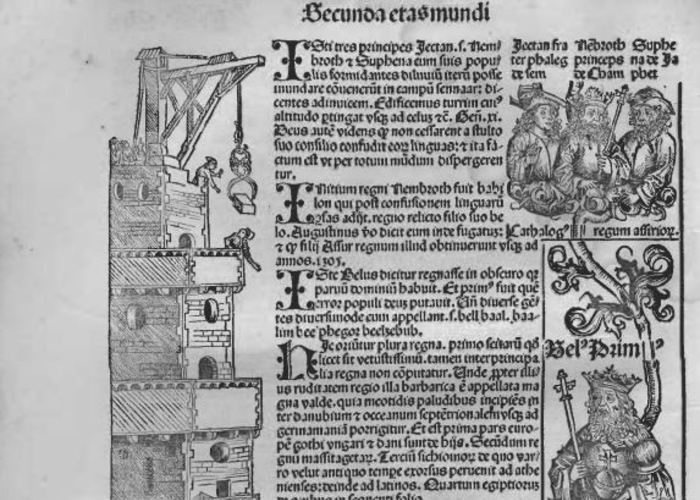 Secunda etas mundi
ISti tres principes Jectan .s. Nem-
broth & Suphena cum suis popu-
lis formidantes diluuiū iterū posse
inundare cōuenerūt in campū sennaar: di-
centes adinuicem. Edificemus turrim cui⁹
altitudo ptingat vsq̄ ad celuȝ ⁊c̄. Geñ. xi.
Deus autē videns q̄ non cessarent a stulto
suo consilio confudit eoꝝ linguas: & ita fa-
ctum est vt per totum mūdum dispergeren
tur.
INitium regni Nembroth fuit babi
lon qui post confusionem linguarū
ꝑsas adijt. regno relicto filio suo be
lo. Augustinus v̄o dicit eum inde fugatuȝ:
& q̄ filij Assur regnum illud obtinuerunt vsq̄ ad
annos. 1305.
ISte Belus dicitur regnasse in obscuro qꝛ
paruū dominiū habuit. Et prim⁹ fuit quē
error populi deuȝ putauit. Uñ diuerse gē-
tes diuersimode eum appellant. s. bell baal. baa-
lim beephegor beelzebub.
HIc oriūtur plura regna. primo scitarū q̄
licet sit vetustissimū. tamen inter principa
lia regna non cōputatur. Unde ꝓpter illi⁹
us ruditatem regio illa barbarica ē appellata ma
gna valde. quia meotidis paludibus incipiēs in
ter danubium & occeanum septētrionalem vsq̄ ad
germaniam porrigitur. Et est prima pars euro-
pē gothi vngari & dani sunt de hijs. Secūdum re
gnū massitagetaꝝ. Terciū sichionioꝝ de quo var-
ro velut antiquo tempe exorsus peruenit ad athe
nienses: deinde ad latinos. Quartum egiptiorus
Jectan fra
ter phaleg
de sem
Nēbroth
princeps
de Cham
Suphe
na de Ja
phet
Cathalog⁹ regum assirioꝝ.
Bel⁹ Prim⁹